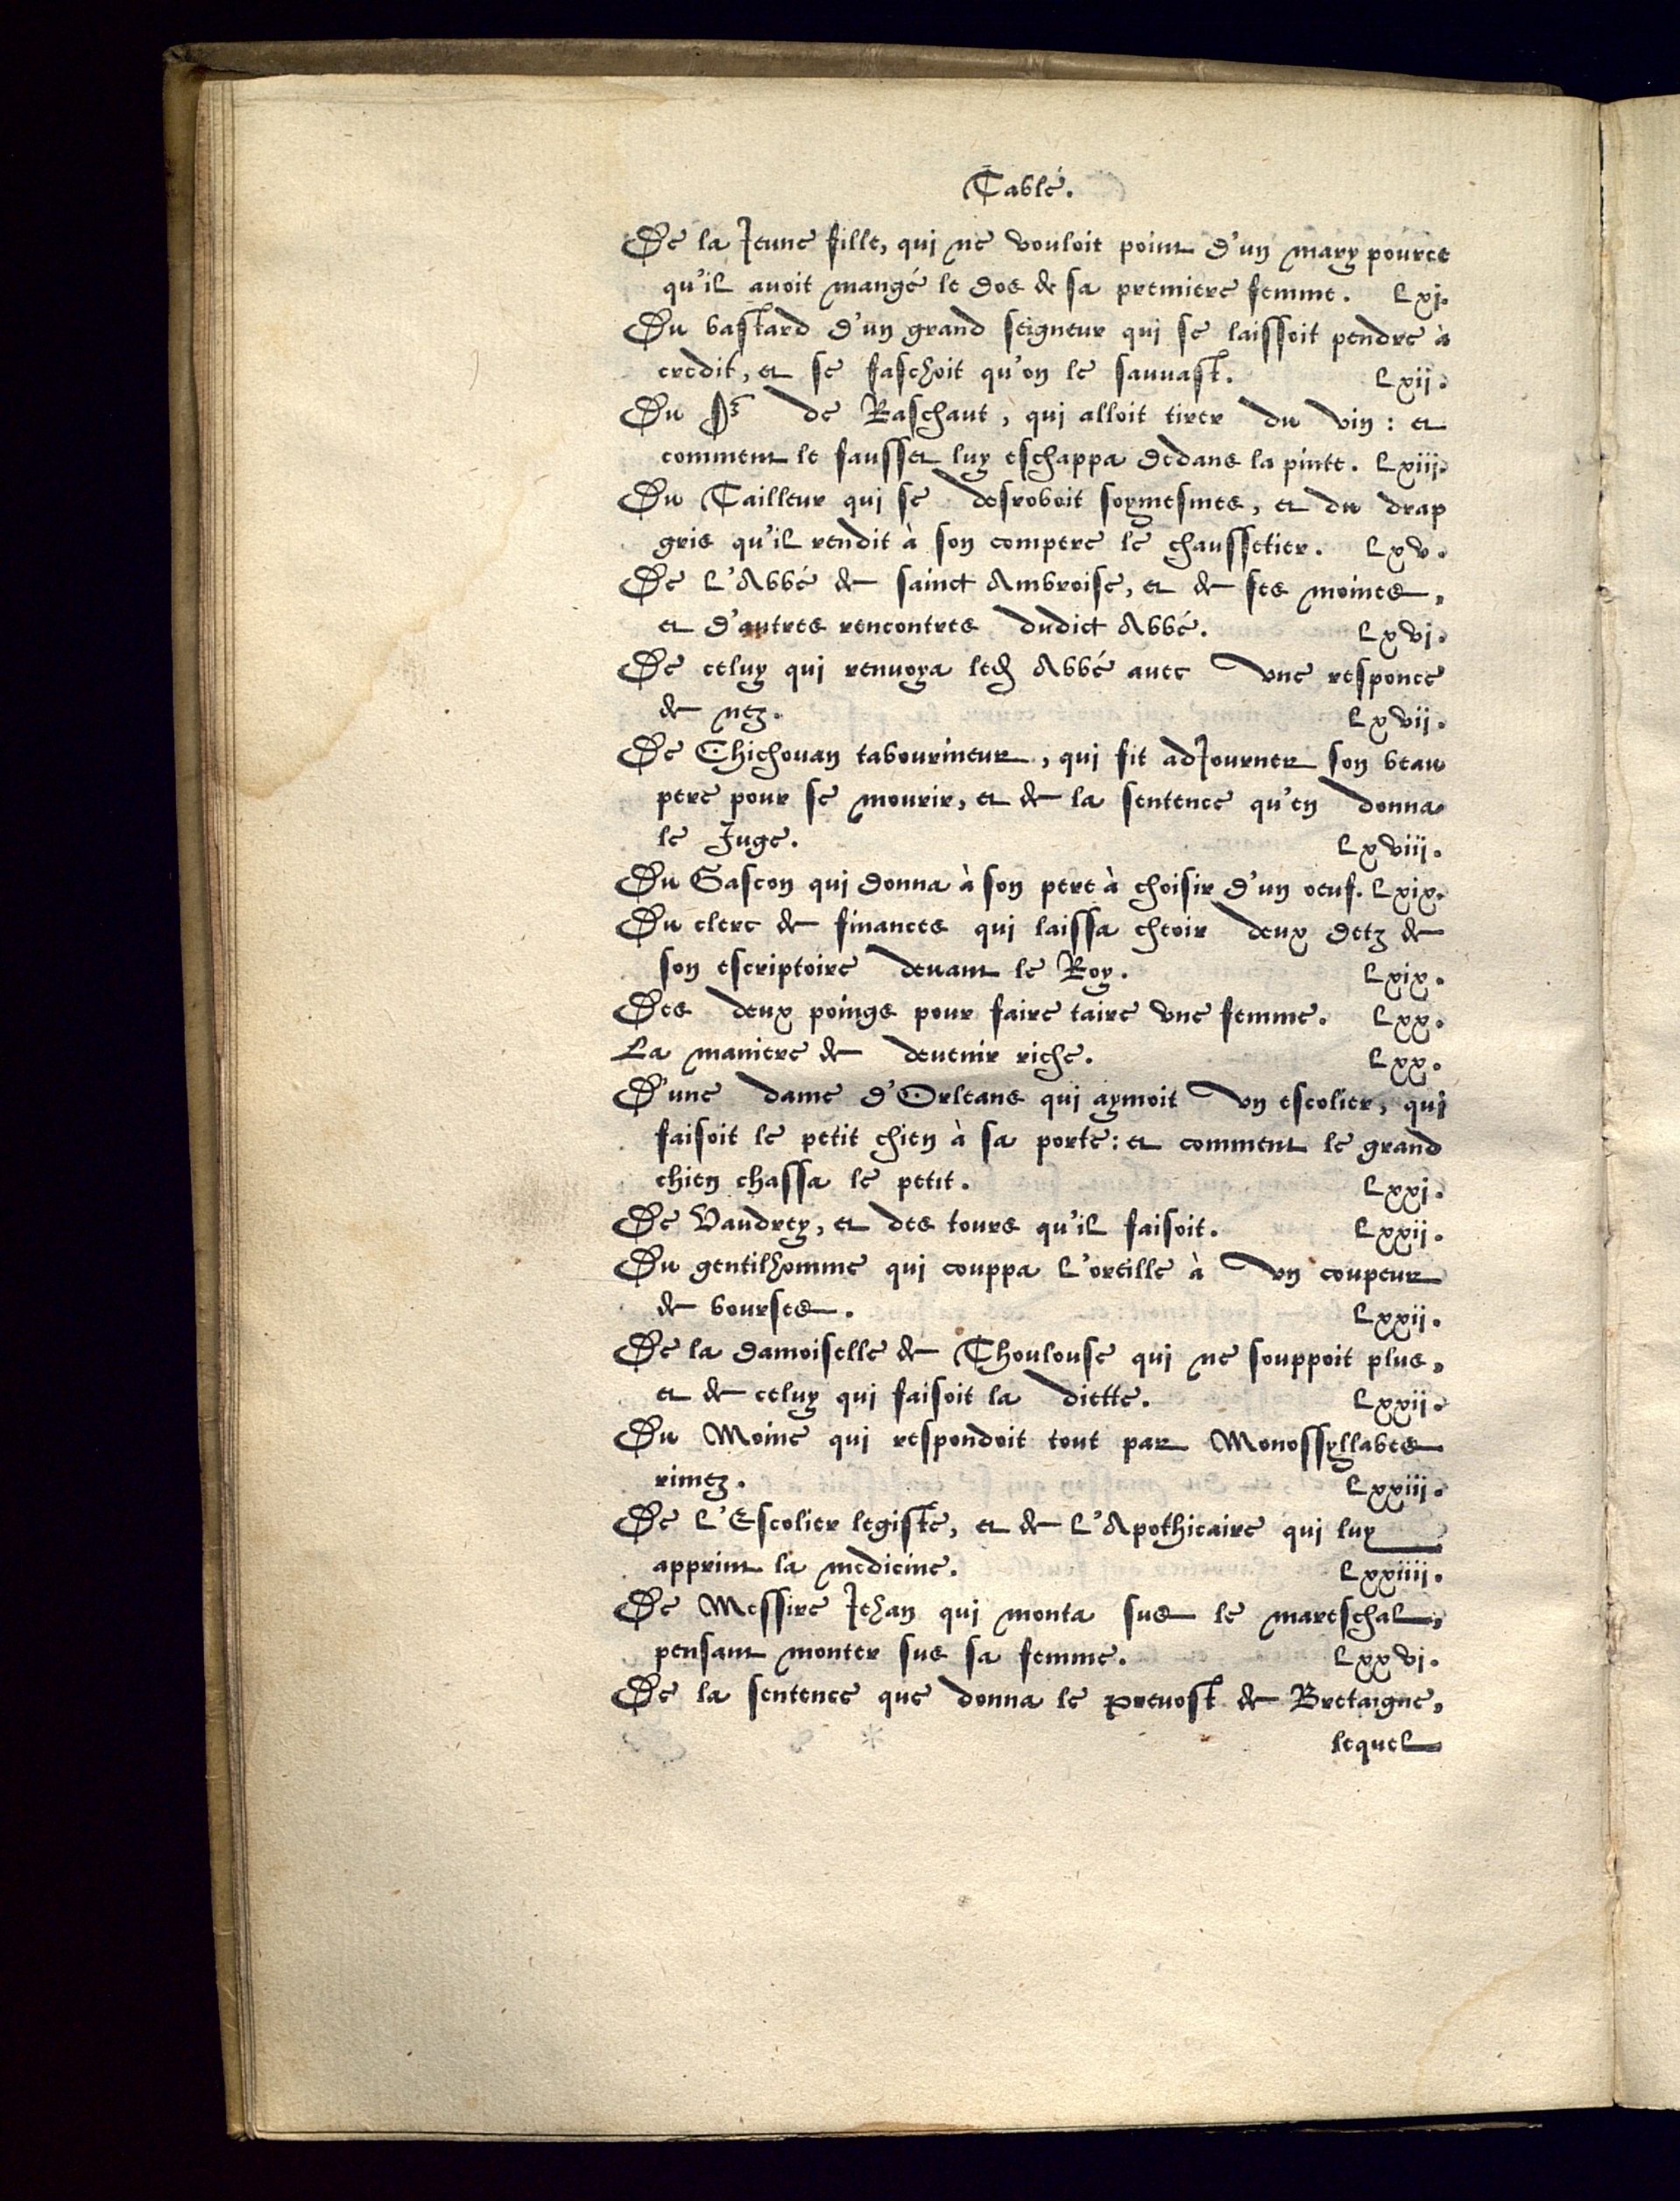 Table.
De la Jeune fille, qui ne vouloit point d'un mary pource
qu'il auoit mangé le dos de sa premiere femme. Lxj.
Du bastard d'un grand seigneur qui se laissoit pendre à
credit, et se faschoit qu'on le sauuast. Lxij.
Du Sr de Raschaut, qui alloit tirer du vin: et
comment le fausset luy eschappa dedans la pinte. Lxiij.
Du Tailleur qui se desroboit soymesmes, et du drap
gris qu'il rendit à son compere le chaussetier. Lxv.
De L'Abbé de sainct Ambroise, et de ses moines,
et d'autres rencontres dudict Abbé. Lxvj.
De celuy qui renuoya led Abbé auec vne responce
de nez. Lxvij.
De Chichouan tabourineur, qui fit adJourner son beau
pere pour se mourir, et de la sentence qu'en donna
le Juge. Lxviij.
Du Gascon qui donna à son pere à choisir d'un oeuf. Lxix.
Du clerc de finances qui laissa cheoir deux detz de
son escriptoire deuant le Roy. Lxix.
Des deux poings pour faire taire vne femme. Lxx.
La maniere de deuenir riche. Lxx.
D'une dame d'Orleans qui aymoit vn escolier, qui
faisoit le petit chien à sa porte: et comment le grand
chien chassa le petit. Lxxj.
De Vaudrey, et des tours qu'il faisoit. Lxxij.
Du gentilhomme qui couppa L'oreille à vn coupeur
de bourses. Lxxij.
De la damoiselle de Thoulouse qui ne souppoit plus,
et de celuy qui faisoit la diette. Lxxij.
Du Moine qui respondoit tout par Monossyllabes
rimez. Lxxiij.
De L'Escolier legiste, et de L'Apothicaire qui luy
apprint la medicine. Lxxiiij.
De Messire Jehan qui monta sus le mareschal,
pensant monter sus sa femme. Lxxvj.
De la sentence que donna le preuost de Bretaigne,
lequel